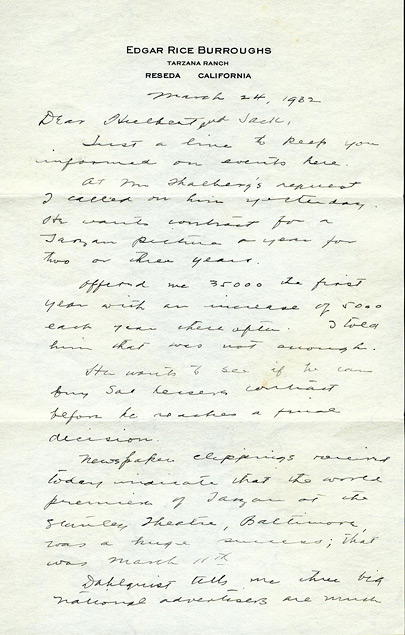 EDGAR RICE BURROUGHS
TARZANA RANCH
RESEDA CALIFORNIA
March 24, 1932
Dear Hulbert and Jack,
Just a line to keep you
informed on events here.
At Mr Thalberg's request
I called on him yesterday.
He wants contract for a
Tarzan picture a year for
two or three years.
Offered me 35000 the first
year with an increase of 5000
each year thereafter. I told
him that was not enough.
He wants to see if he can
buy Sol Lesser's contract
before he reaches a final
decision.
Newspaper clippings received
today indicate that the world
premier of Tarzan at the
Stanley Theatre, Baltimore,
was a huge success; that
was March 11th
Dahlquist tells me three big
national advertisers are much